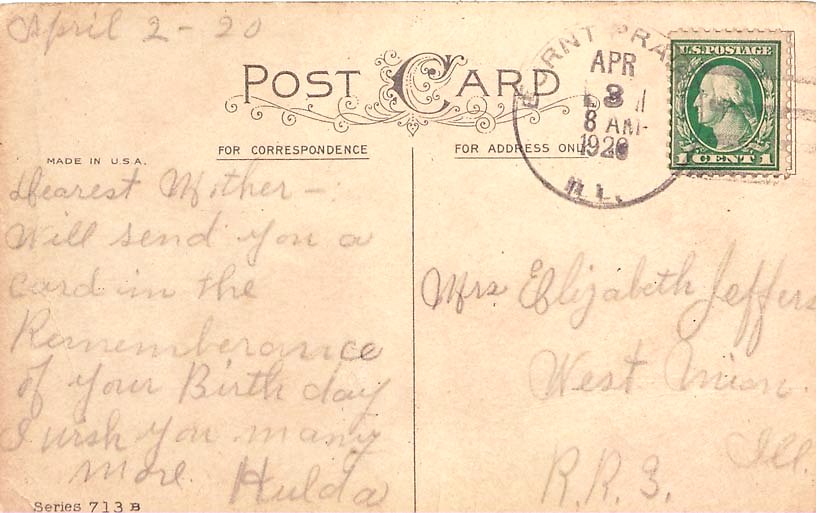 April 2 - 20
POST CARD
U.S. POSTAGE
1 CENT 1
APR
3
8 AM
1920
ILL.
FOR CORRESPONDENCE
FOR ADDRESS ONLY
MADE IN U.S.A.
Dearest Mother -
Will send you a
card in the
Rememberance
of your Birth day
I wish you many
more. Hulda
Series 713 B
Mrs Elizabeth Jeffers
West Union.
Ill.
R.R. 3.